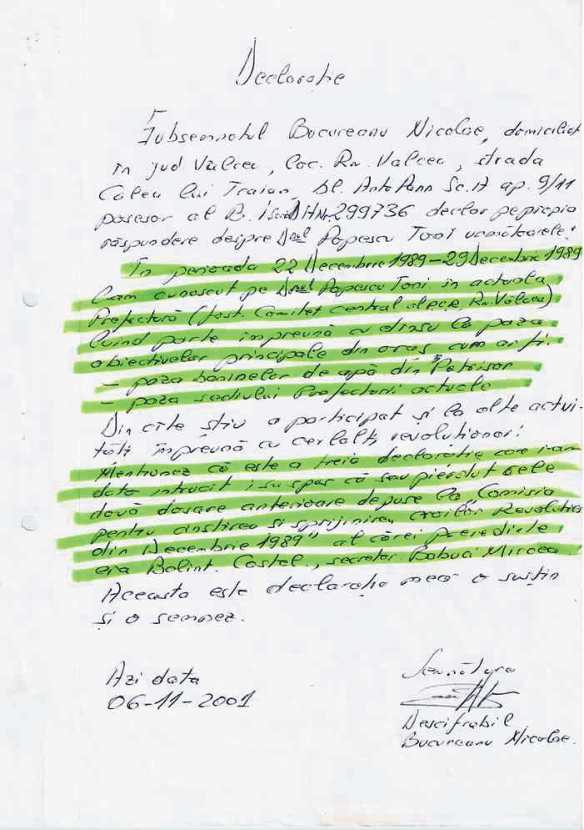 Declarație
Subsemnatul Bucureanu Nicolae, domiciliat
în jud Vâlcea, loc. Rm. Vâlcea, strada
Calea lui Traian, bl. Anto Pann Sc. A ap. 9/11
posesor al B.I. seria DH Nr 299736 declar pe propia
răspundere despre Dnul Popescu Toni următoarele:
În perioada 22 Decembrie 1989 – 29 Decembrie 1989
l-am cunoscut pe Dnul Popescu Toni în actuala
Prefectură (fost Comitet Central al PCR Rm Vâlcea)
luînd parte împreună cu dînsu la paza
obiectivelor principale din oraș cum ar fi:
– paza bazinelor de apă din Petrișor
– paza sediului Prefecturii actuale
Din cîte știu a participat și la alte activi-
tăți împreună cu ceilalți revoluționari.
Menționez că este a treia declarație care i-am
dato întrucît i su spus că sau pierdut cele
două dosare anterioare depuse la „Comisia
pentru cinstirea și sprijinirea eroilor Revoluției
din Decembrie 1989" al cărei președinte
era Balint Costel, secretar Babuci Mircea
Aceasta este declarația mea o susțin
și o semnez.
Azi data
06-11-2001
Semnătura
Descifrabil
Bucureanu Nicolae.